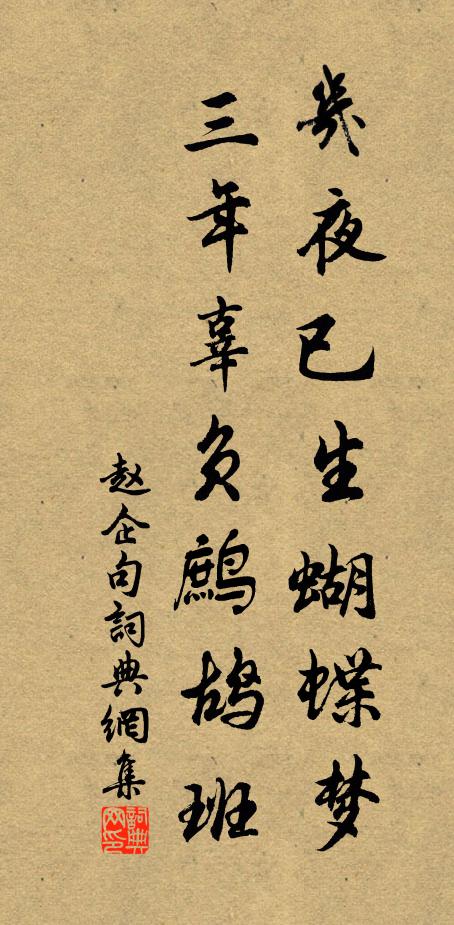 几夜已生蝴蝶梦
三年辜负鹧鸪班
赵企句詞典網集
詞典网印